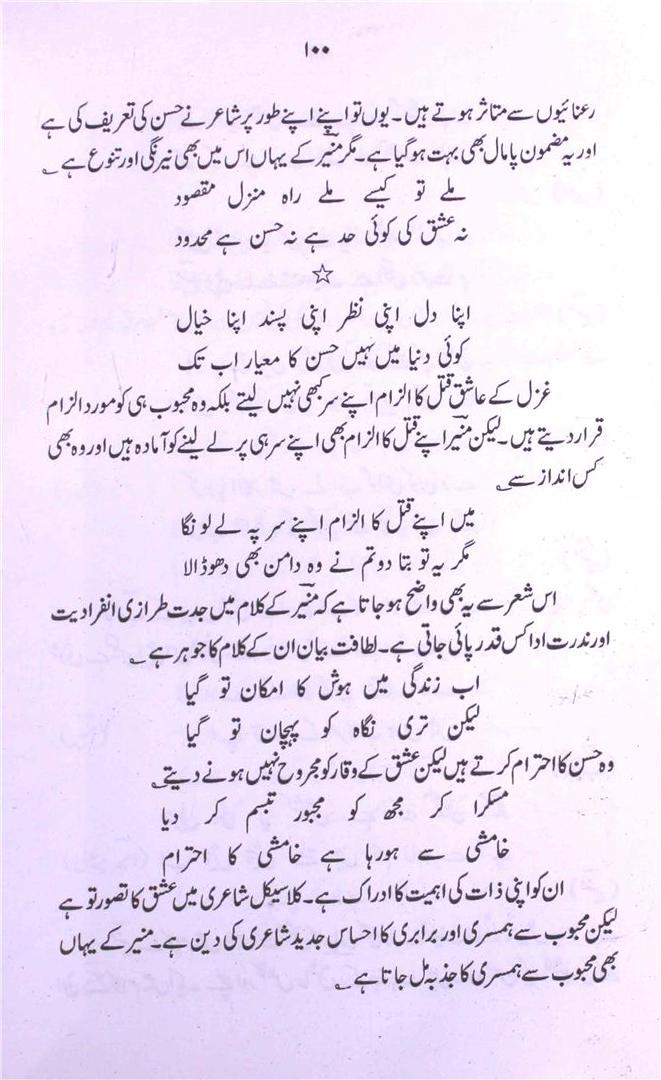 ۱۰۰
رعنائیوں سے متاثر ہوتے ہیں۔ یوں تو اپنے اپنے طور پر شاعر نے حسن کی تعریف کی ہے
اور یہ مضمون پامال بھی بہت ہو گیا ہے۔ مگر منیر کے یہاں اس میں بھی نیرنگی اور تنوع ہے ؎
ملے تو کیسے ملے راہ منزل مقصود
نہ عشق کی کوئی حد ہے نہ حسن ہے محدود
☆
اپنا دل اپنی نظر اپنی پسند اپنا خیال
کوئی دنیا میں نہیں حسن کا معیار اب تک
غزل کے عاشق قتل کا الزام اپنے سر کبھی نہیں لیتے بلکہ وہ محبوب ہی کو مورد الزام
قرار دیتے ہیں۔ لیکن منیر اپنے قتل کا الزام بھی اپنے سر ہی پر لے لینے کو آمادہ ہیں اور وہ بھی
کس انداز سے ؎
میں اپنے قتل کا الزام اپنے سر پہ لے لونگا
مگر یہ تو بتا دو تم نے وہ دامن بھی دھو ڈالا
اس شعر سے یہ بھی واضح ہو جاتا ہے کہ منیر کے کلام میں جدت طرازی انفرادیت
اور ندرت ادا کس قدر پائی جاتی ہے۔ لطافت بیان ان کے کلام کا جوہر ہے ؎
اب زندگی میں ہوش کا امکان تو گیا
لیکن تری نگاہ کو پہچان تو گیا
وہ حسن کا احترام کرتے ہیں لیکن عشق کے وقار کو مجروح نہیں ہونے دیتے ؎
مسکرا کر مجھ کو مجبور تبسم کر دیا
خامشی سے ہو رہا ہے خامشی کا احترام
ان کو اپنی ذات کی اہمیت کا ادراک ہے۔ کلاسیکل شاعری میں عشق کا تصور تو ہے
لیکن محبوب سے ہمسری اور برابری کا احساس جدید شاعری کی دین ہے۔ منیر کے یہاں
بھی محبوب سے ہمسری کا جذبہ مل جاتا ہے ؎